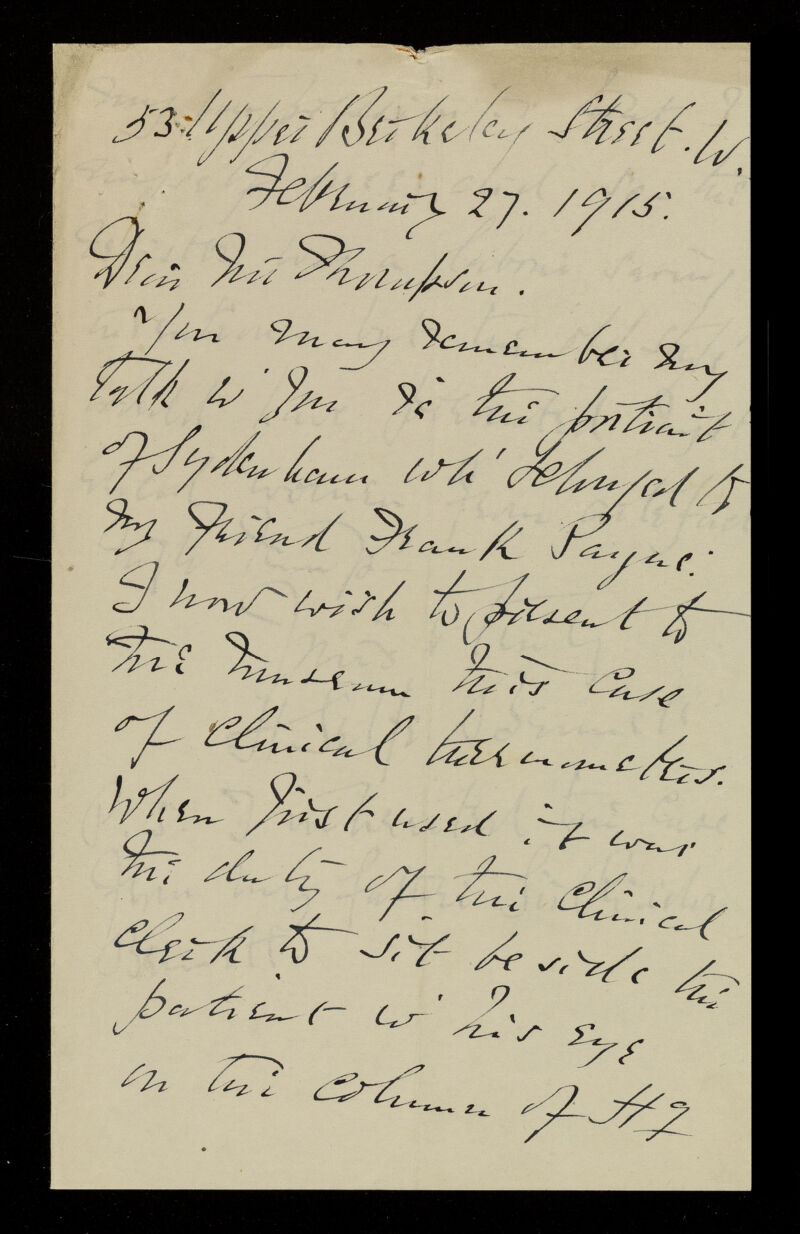 53 Upper Berkeley Street. W.
February 27. 1915.
Dear Mr Thompson.
You may remember my
talk w' you re the portrait
of Sydenham wh' belonged to
my friend Frank Payne.
I now wish to present to
the Museum this case
of clinical thermometers.
When first used it was
the duty of the clinical
clerk to sit beside the
patient w' his eye
on the column of Hg